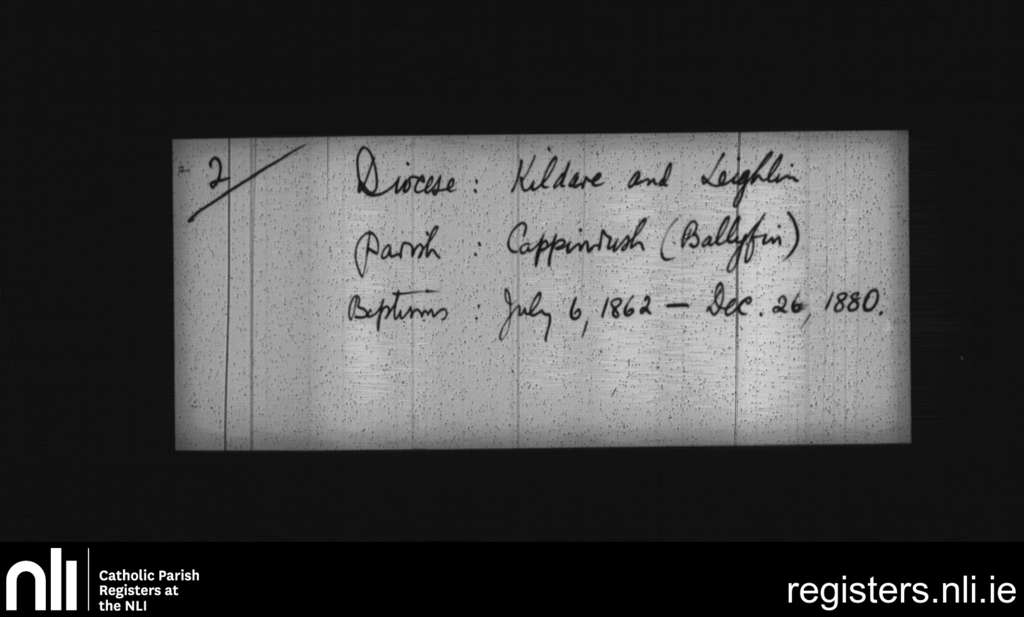 2
Diocese : Kildare and Leighlin
Parish : Cappinrush (Ballyfin)
Baptisms : July 6, 1862 — Dec. 26, 1880.
nli
Catholic Parish
Registers at
the NLI
registers.nli.ie